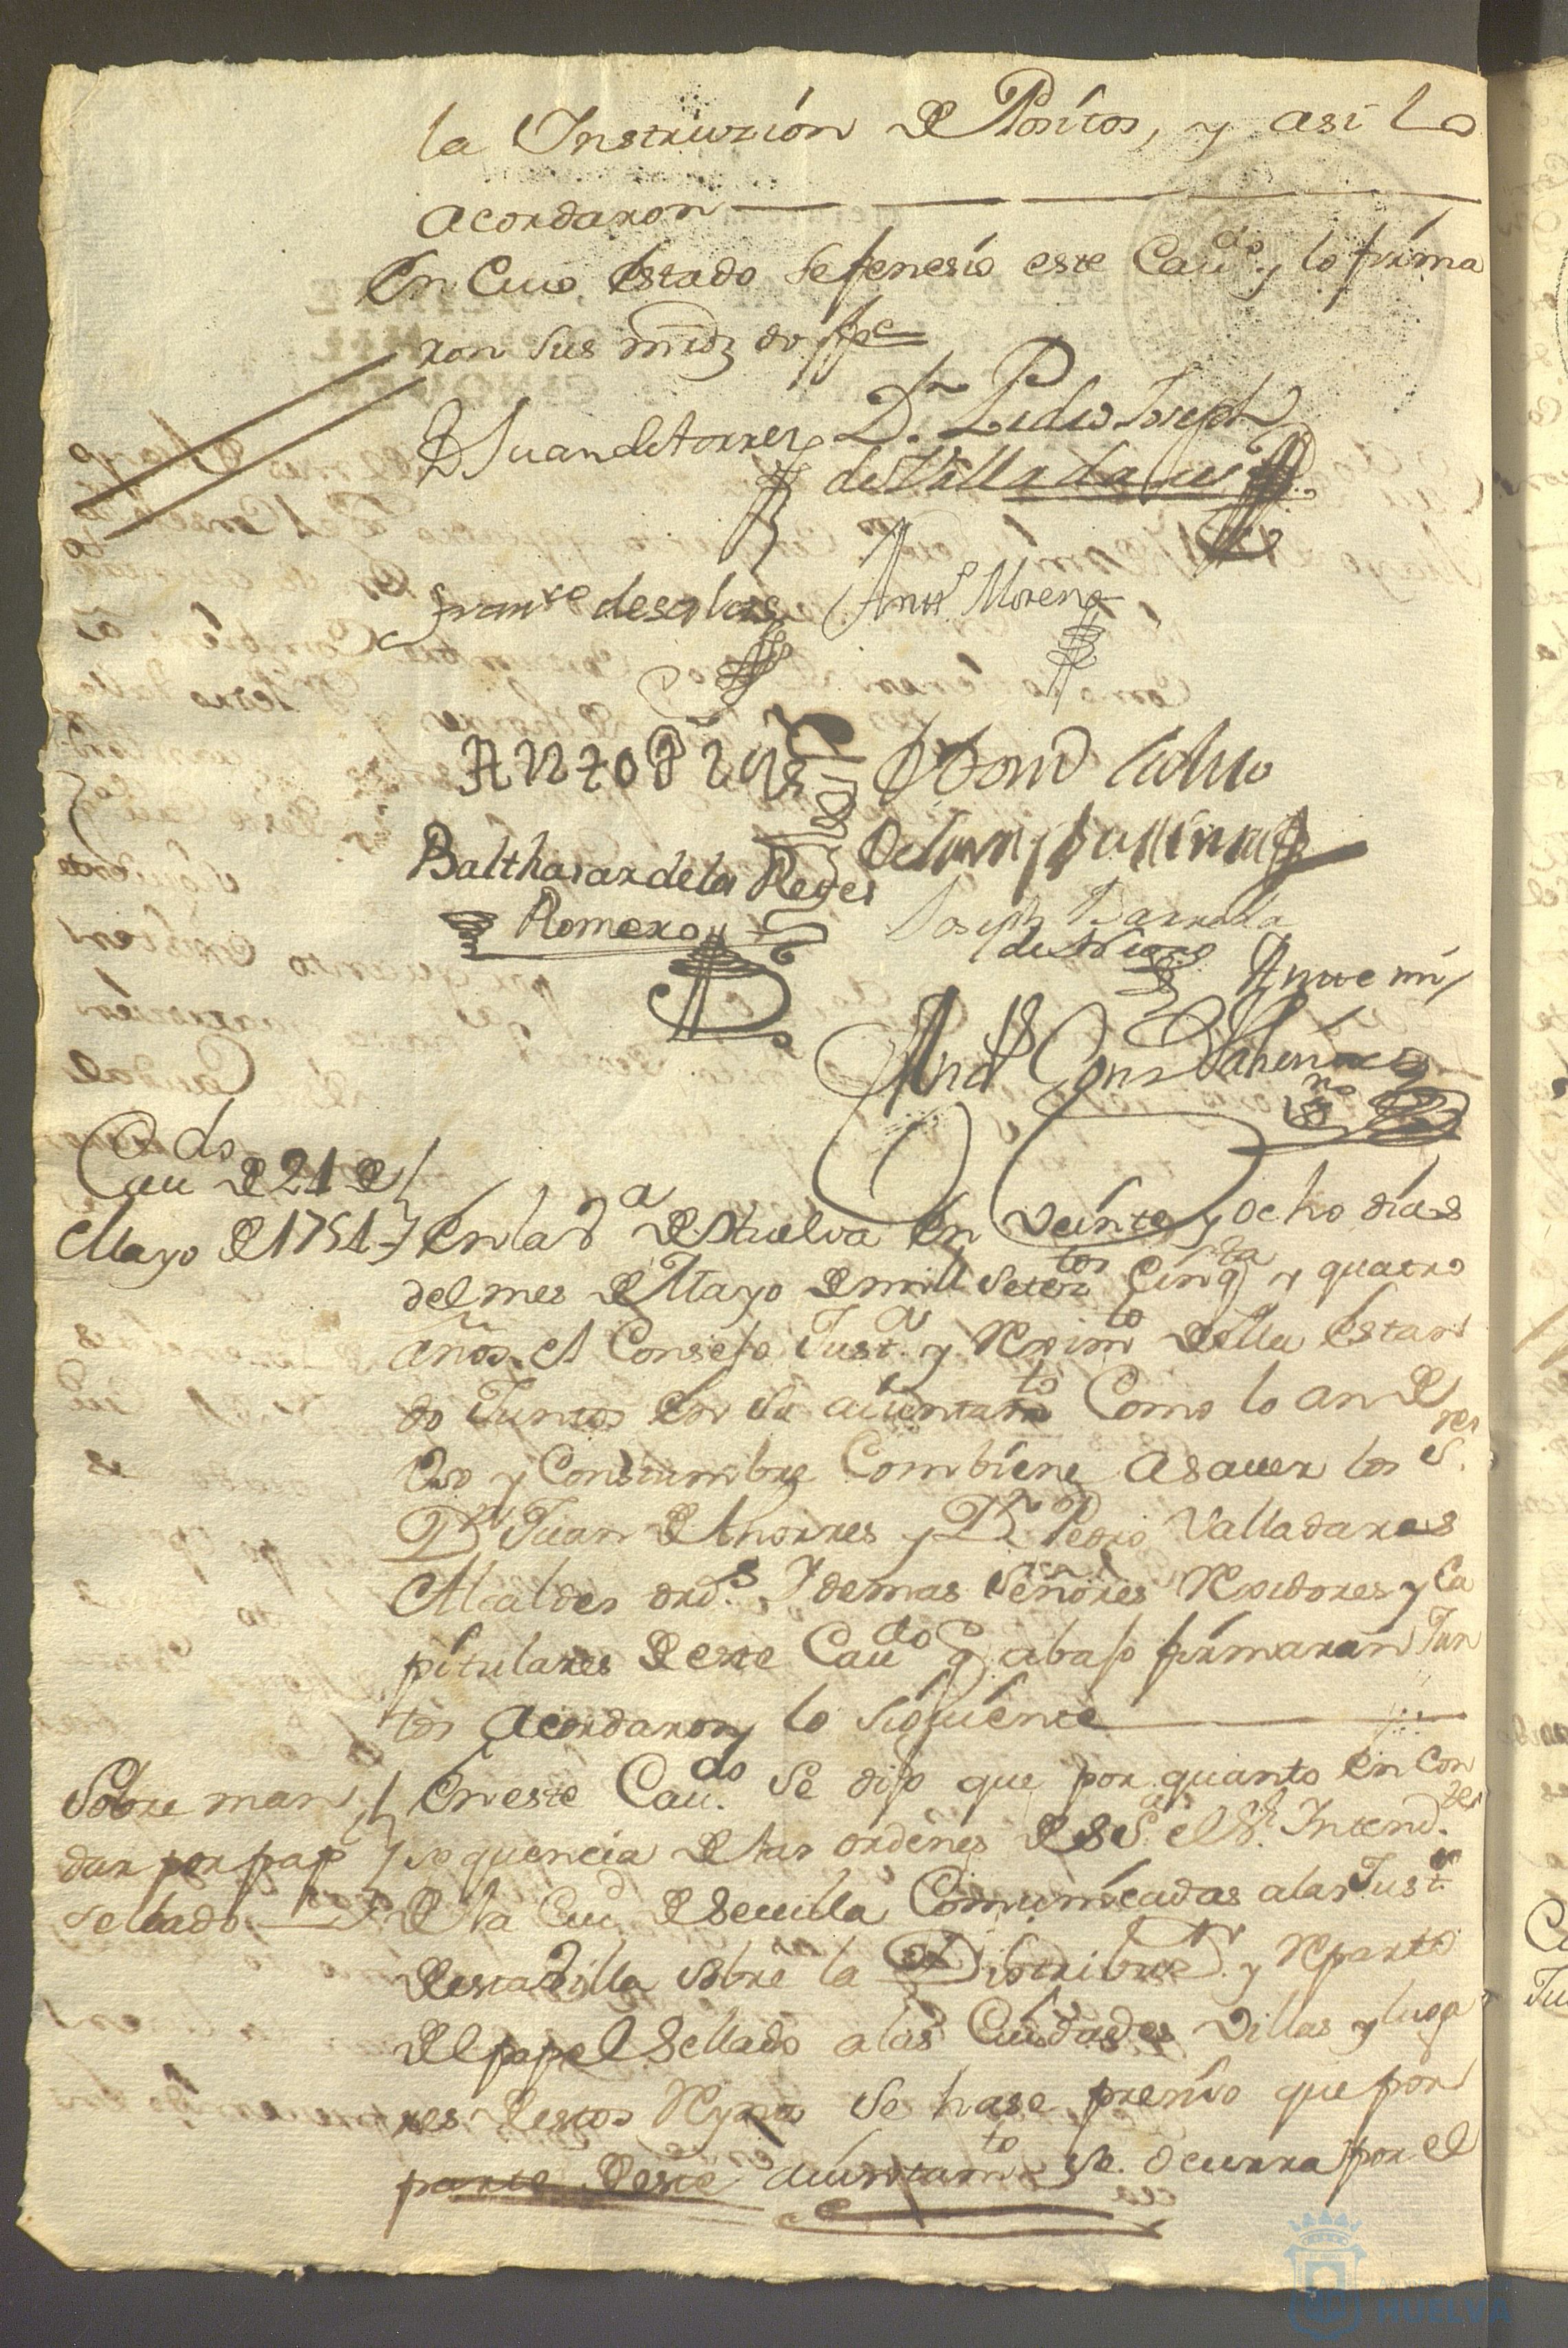 la Instruzión de Positos, y asi lo
acordaron
En Cuio estado se fenesió este Caudo y lo firma
ron sus mrdz doy ffe
D Juan de torres Dn Pedro Joseph
de Valladares
Franco de Antto Moreno
Balthasar de los Reyes
Romero
Joseph Barreda
Antte mi
Caudo de 21 de
Mayo de 1754
En la Va de Huelva en veinte y ocho días
del mes de Mayo de mill setetos Cinqta y quatro
años el Consejo Justa y Reximto della estan
do Juntos en su aiuntamto Como lo an de
Uso y Constumbre Combiene a sauer los Sres
Dn Juan de thorres y Dn Pedro Valladares
Alcaldes ords y demas señores Rexidores y Ca
pitulares de este Caudo q abajo firmaran Jun
tos acordaron lo siguiente
Sobre man
dar por papl
sellado
En este Caudo se dijo que por quanto en Con
sequencia de las ordenes de su Sa el Sr Intendte
de la Ciud de Seuilla Comunicadas a las Justas
de esta Villa sobre la Distribuon y Reparto
del papel Sellado a las Ciudades Villas y luga
res de estos Reynos se hase presiso que por
parte de este aiuntamto se ocurra por el